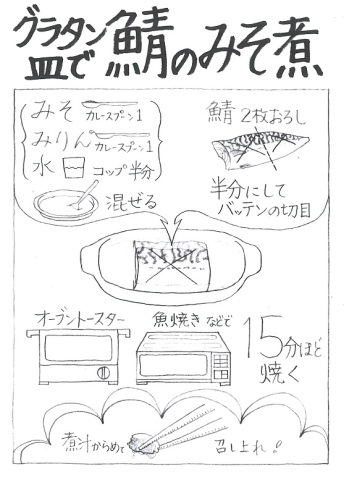 グラタン皿で鯖のみそ煮
みそ カレースプーン1
みりん カレースプーン1
水 コップ半分
混ぜる
鯖 2枚おろし
半分にして
バッテンの切目
オーブントースター
魚焼きなどで
15分ほど
焼く
煮汁からめて
召し上れ!